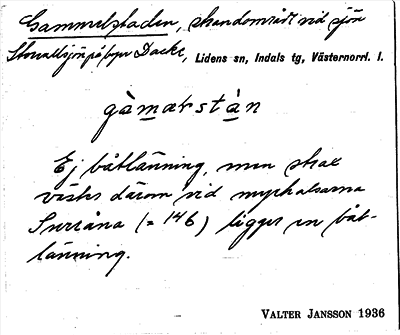 Gammelstaden, strandområde vid sjön
Storvallsjön på byn Dacke, Lidens sn, Indals tg, Västernorrl. l.
gàmarstàn
Ej båtlänning, men strax
väster därom vid myrhalsarna
(= 146) ligger en båt-
länning.
VALTER JANSSON 1936